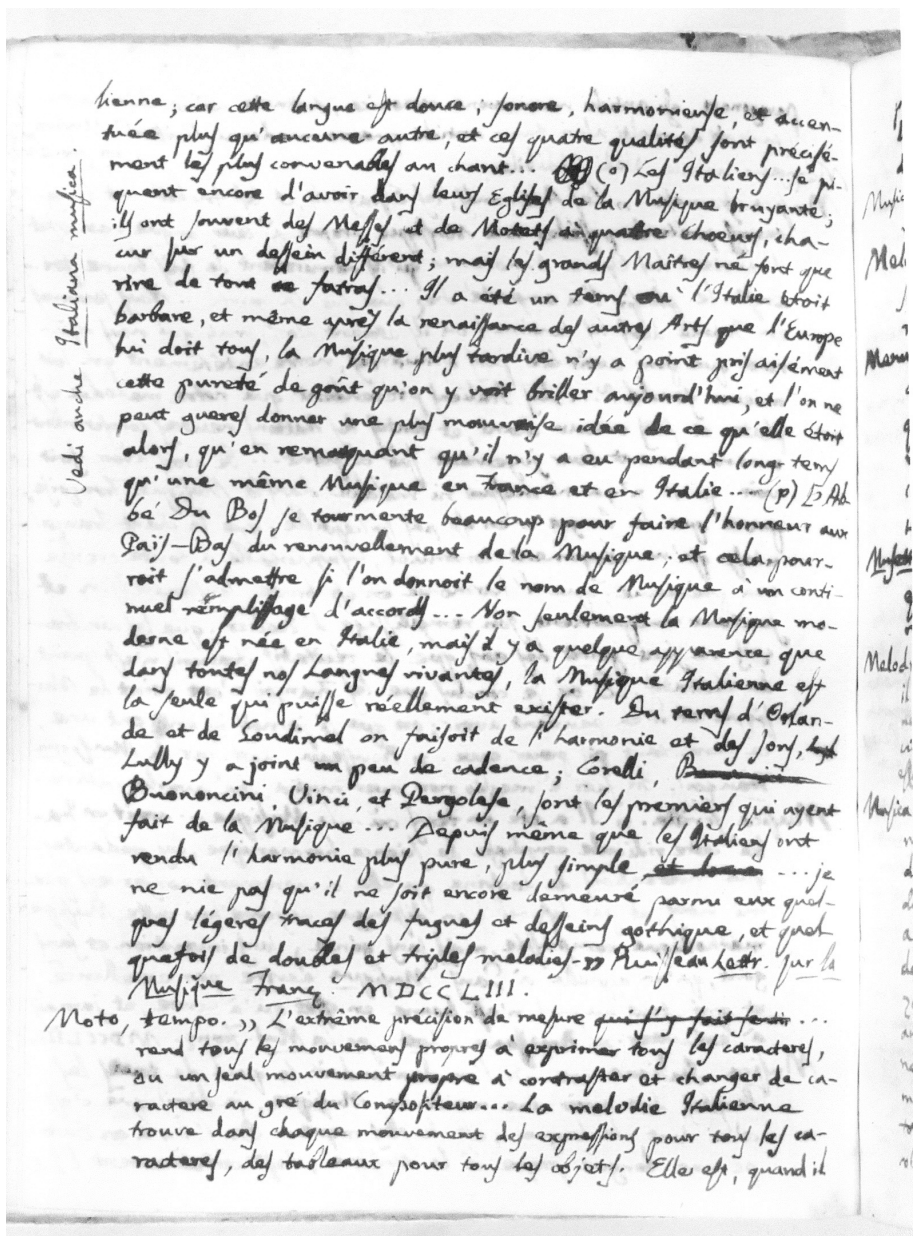 lienne; car cette langue est douce, sonore, harmonieuse, et accen-
tuée plus qu'aucune autre, et ces quatre qualités sont précisé-
ment les plus convenables au chant... (o) Les Italiens... se pi-
quent encore d'avoir dans leurs Eglises de la Musique bruyante;
ils ont souvent des Messes et de Motets à quatre choeurs, cha-
cur sur un dessein différent; mais les grands Maîtres ne font que
rire de tout ce fatras... Il a été un tems où l'Italie étoit
barbare, et même après la renaissance des autres Arts que l'Europe
lui doit tous, la Musique plus tardive n'y a point pris aisément
cette pureté de goût qu'on y voit briller aujourd'hui, et l'on ne
peut gueres donner une plus mauvaise idée de ce qu'elle étoit
alors, qu'en remarquant qu'il n'y a eu pendant long-tems
qu'une même Musique en France et en Italie.... (p) L'Ab-
be Du Bos se tourmente beaucoup pour faire l'honneur aux
Païs-Bas du renouvellement de la Musique, et cela pour-
roit s'admettre si l'on donnoit le nom de Musique à un conti-
nuel rémplissage d'accords... Non seulement la Musique mo-
derne est née en Italie, mais il y a quelque apparence que
dans toutes nos Langues vivantes, la Musique Italienne est
la seule qui puisse réellement exister. Du tems d'Orlan-
de et de Goudimel on faisoit de l'harmonie et des sons,
Lully y a joint un peu de cadence; Corelli,
Buononcini, Vinci, et Pergolese, sont les premiers qui ayent
fait de la Musique... Depuis même que les Italiens ont
rendu l'harmonie plus pure, plus simple et ... je
ne nie pas qu'il ne soit encore demeuré parmi eux quel-
ques légères traces des fugues et desseins gothique, et quel
quefois de doubles et triples melodies.„ Rousseau Lettr. sur la
Musique Franç. MDCCLIII.
Moto tempo. „ L'extrême précision de mesure qui s'y fait sentir...
rend tous les mouvemens propres à exprimer tous les caracteres,
ou un seul mouvement propre à contraster et changer de ca-
ractere au gré du Compositeur... La melodie Italienne
trouve dans chaque mouvement des expressions pour tous les ca-
racteres, des tableaux pour tous les objets. Elle est, quand il
Vedi anche Italiana musica.
Musica
Melod
Musica